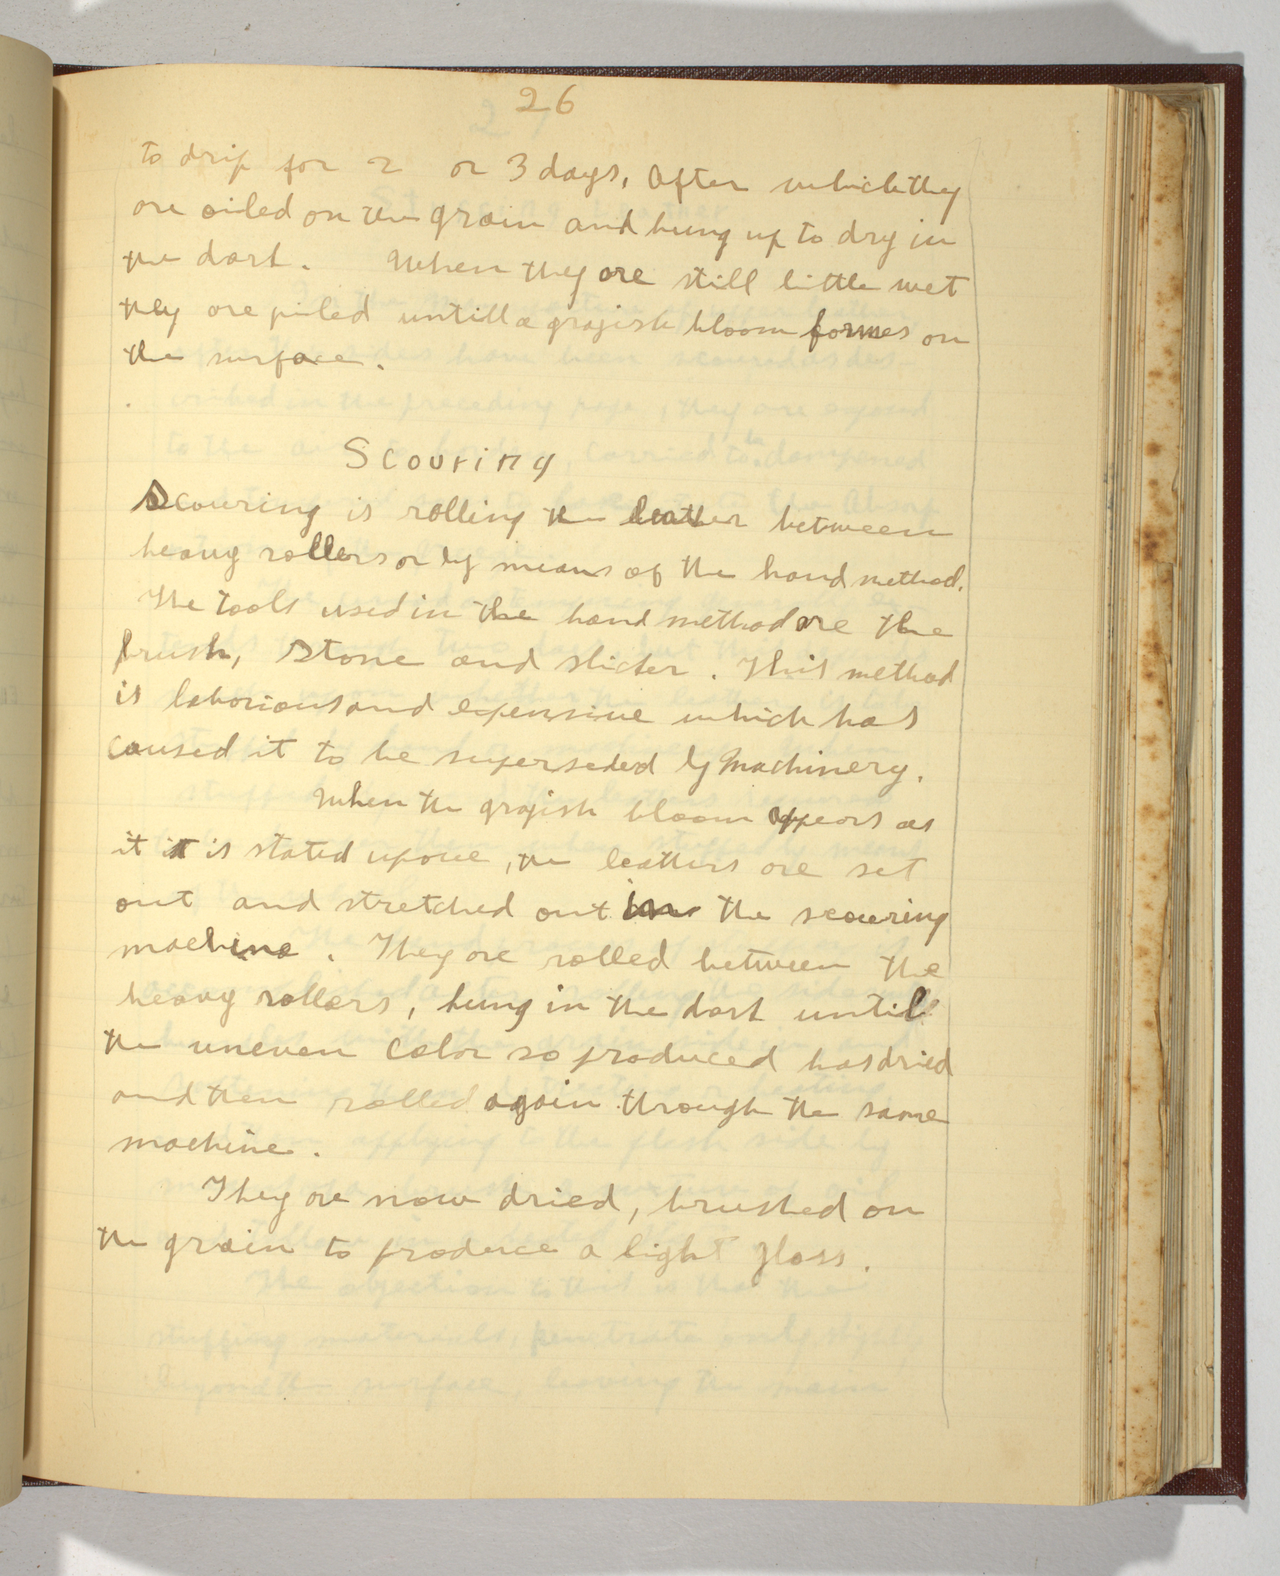 26
to drip for 2 or 3 days, after which they
are oiled on the grain and hung up to dry in
the dark. When they are still little wet
they are piled untill a grayish bloom formes on
the surface.
Scouring
Scouring is rolling the leather between
heavy rollers or by means of the hand method.
The tools used in the hand method are the
brush, stone and slicker. This method
is laborious and expensive which has
caused it to be superseded by machinery.
When the grayish bloom appears as
it it is stated upove, the leathers are set
out and stretched out in the scouring
machine. They are rolled between the
heavy rollers, hung in the dark until
the uneven color so produced has dried
and then rolled again through the same
machine.
They are now dried, brushed on
the grain to produce a light gloss.